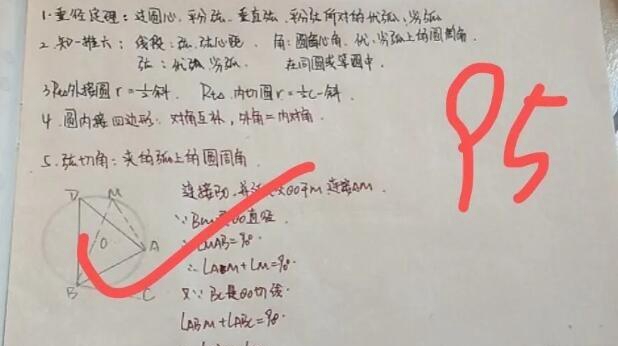 1.垂径定理：过圆心、平分弦、垂直弦、平分弦所对的优弧、劣弧
2.知一推六：线段：弦、弦心距、角：圆心角、优、劣弧上的圆周角.
弧：优弧、劣弧. 在同圆或等圆中.
3.Rt△外接圆r=½斜. Rt△内切圆r=½C-斜.
4.圆内接四边形：对角互补，外角=内对角.
5.弦切角：夹的弧上的圆周角.
连接BO，并延⊙O于M 连接AM.
∵BM是⊙O直径
∴∠MAB=90°.
∴∠ABM+∠M=90°.
又∵BC是⊙O切线.
∠ABM+∠ABC=90°
D M
O A
B C
95